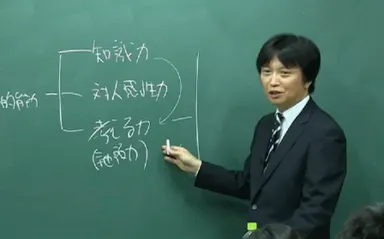 知識力
的能力
対人感性力
考える力
(地頭力)